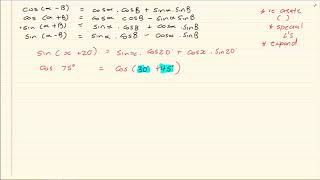 cos(α-β) = cosα.cosβ + sinα.sinβ
cos(α+β) = cosα cosβ - sinα.sinβ
sin(α+β) = sinα.cosβ + cosα.sinβ
sin(α-β) = sinα.cosβ - cosα.sinβ
* create
( )
* special
∠'s
* expand
sin(x+20°) = sinx.cos20 + cosx.sin20
cos 75° = cos(30°+45°)